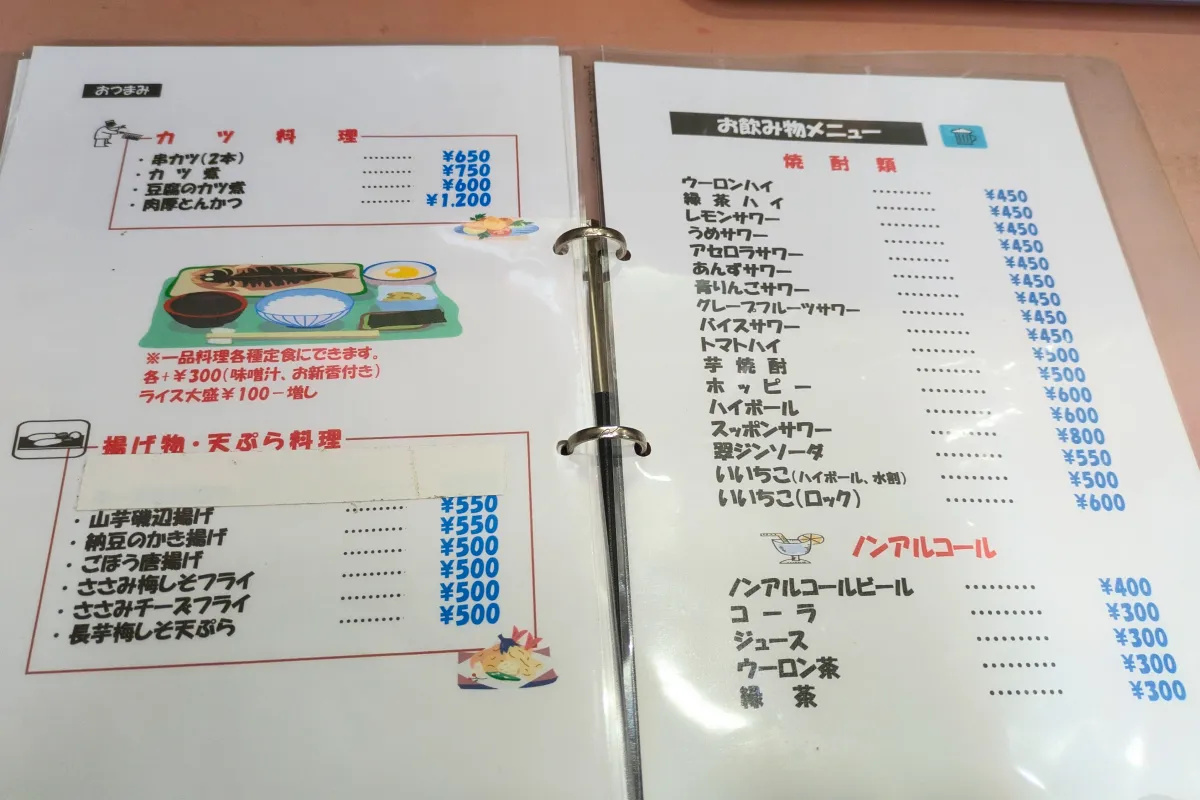 おつまみ
カツ料理
・串カツ(2本) ……… ¥650
・カツ煮 ……… ¥750
・豆腐のカツ煮 ……… ¥600
・肉厚とんかつ ……… ¥1.200
※一品料理各種定食にできます。
各+¥300(味噌汁、お新香付き)
ライス大盛¥100-増し
揚げ物・天ぷら料理
・山芋磯辺揚げ ……… ¥550
・納豆のかき揚げ ……… ¥550
・ごぼう唐揚げ ……… ¥500
・ささみ梅しそフライ ……… ¥500
・ささみチーズフライ ……… ¥500
・長芋梅しそ天ぷら ……… ¥500
お飲み物メニュー
焼酎類
ウーロンハイ ……… ¥450
緑茶ハイ ……… ¥450
レモンサワー ¥450
うめサワー ……… ¥450
アセロラサワー ……… ¥450
あんずサワー ……… ¥450
青りんごサワー ……… ¥450
グレープフルーツサワー ……… ¥450
バイスサワー ……… ¥450
トマトハイ ……… ¥500
芋焼酎 ……… ¥500
ホッピー ……… ¥600
ハイボール ……… ¥600
スッポンサワー ……… ¥800
翠ジンソーダ ……… ¥550
いいちこ(ハイボール、水割) ……… ¥500
いいちこ(ロック) ……… ¥600
ノンアルコール
ノンアルコールビール ……… ¥400
コーラ ……… ¥300
ジュース ……… ¥300
ウーロン茶 ……… ¥300
緑茶 ……… ¥300